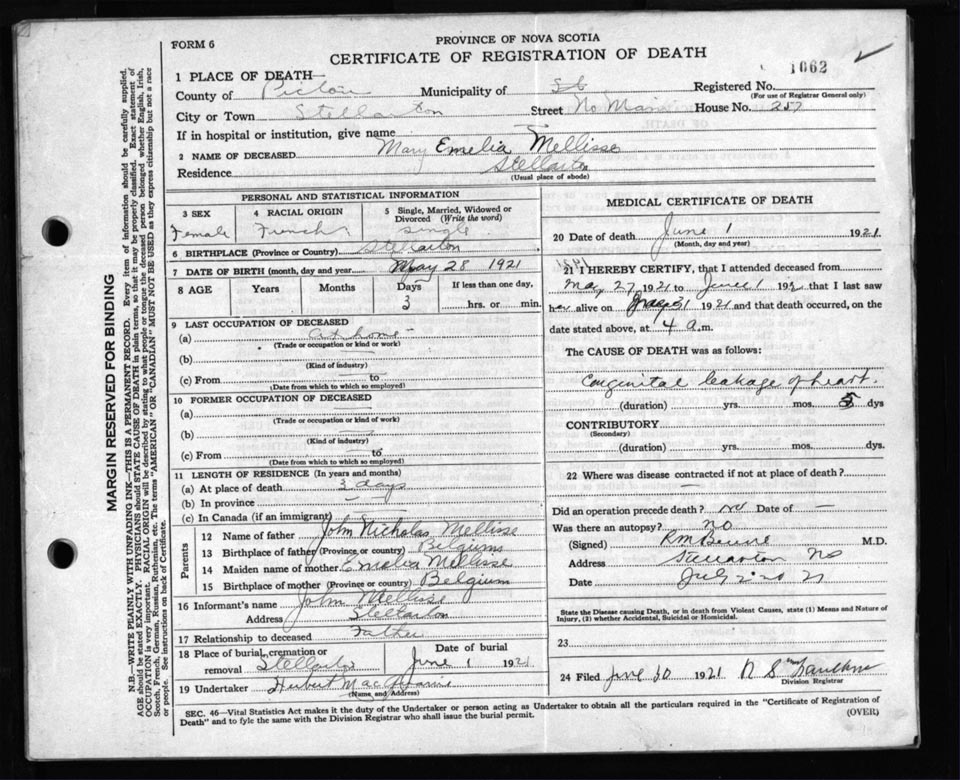 FORM 6
PROVINCE OF NOVA SCOTIA
CERTIFICATE OF REGISTRATION OF DEATH
1662
1 PLACE OF DEATH—
County of Pictou Municipality of Registered No.
(For use of Registrar General only)
City or Town Stellarton Street No Main House No. 257
If in hospital or institution, give name
2 NAME OF DECEASED Mary Emelia Mellisse
Residence Stellarton
(Usual place of abode)
PERSONAL AND STATISTICAL INFORMATION
3 SEX
Female
4 RACIAL ORIGIN
French
5 Single, Married, Widowed or Divorced (Write the word)
Single
6 BIRTHPLACE (Province or Country) Stellarton
7 DATE OF BIRTH (month, day and year) May 28 1921
8 AGE Years Months Days If less than one day,
3 hrs. or min.
9 LAST OCCUPATION OF DECEASED
(a) at home
(Trade or occupation or kind or work)
(b)
(Kind of industry)
(c) From to
(Date from which to which so employed)
10 FORMER OCCUPATION OF DECEASED
(a)
(Trade or occupation or kind of work)
(b)
(Kind of industry)
(c) From to
(Date from which to which so employed)
11 LENGTH OF RESIDENCE (In years and months)
(a) At place of death 3 days
(b) In province
(c) In Canada (if an immigrant)
Parents
12 Name of father John Nicholas Mellisse
13 Birthplace of father (Province or country) Belgium
14 Maiden name of mother Emelia Mellisse
15 Birthplace of mother (Province or country) Belgium
16 Informant's name John Mellisse
Address Stellarton
17 Relationship to deceased Father
18 Place of burial, cremation or removal Stellarton
Date of burial
June 1 1921
19 Undertaker Herbert
(Name, and Address)
MEDICAL CERTIFICATE OF DEATH
20 Date of death June 1 1921
(Month, day and year)
1921
21 I HEREBY CERTIFY, that I attended deceased from
May 27 1921 to June 1 192 that I last saw
alive on May 31 1921 and that death occurred, on
the date stated above, at 4 a.m.
The CAUSE OF DEATH was as follows:
Congenital leakage of heart.
(duration) yrs. mos. 5 dys
CONTRIBUTORY
(Secondary)
(duration) yrs. mos. dys.
22 Where was disease contracted if not at place of death?
Did an operation precede death? no Date of —
Was there an autopsy? no
(Signed) M.D.
Address Stellarton NS
Date July 2nd 21
State the Disease causing Death, or in death from Violent Causes, state (1) Means and Nature of
Injury, (2) whether Accidental, Suicidal or Homicidal.
23
24 Filed June 30 1921
Division Registrar
SEC. 46—Vital Statistics Act makes it the duty of the Undertaker or person acting as Undertaker to obtain all the particulars required in the "Certificate of Registration of
Death" and to fyle the same with the Division Registrar who shall issue the burial permit.
(OVER)
MARGIN RESERVED FOR BINDING
N.B.—WRITE PLAINLY WITH UNFADING INK—THIS IS A PERMANENT RECORD. Every item of information should be carefully supplied.
AGE should be stated EXACTLY. PHYSICIANS should STATE CAUSE OF DEATH in plain terms, so that it may be properly classified. Exact statement of
OCCUPATION is very important. RACIAL ORIGIN will be described by stating to what people or tongue the deceased person belonged whether English, Irish,
Scotch, French, German, Russian, Ruthenian, etc. The terms "AMERICAN" OR "CANADIAN" MUST NOT BE USED as they express citizenship but not a race
or people. See instructions on back of Certificate.